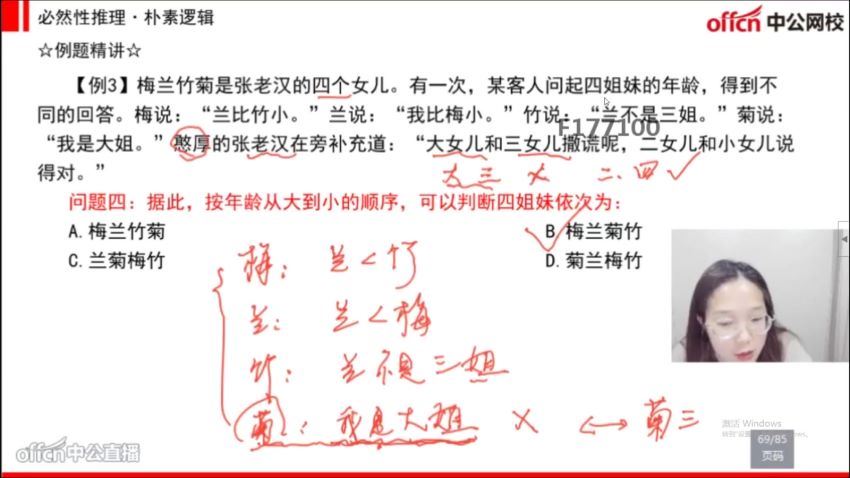 必然性推理·朴素逻辑
offcn 中公网校
☆例题精讲☆
【例3】梅兰竹菊是张老汉的四个女儿。有一次，某客人问起四姐妹的年龄，得到不
同的回答。梅说：“兰比竹小。”兰说：“我比梅小。”竹说：“兰不是三姐。”菊说：
F177100
“我是大姐。”憨厚的张老汉在旁补充道：“大女儿和三女儿撒谎呢，二女儿和小女儿说
得对。”
大 三 × 二、四 ✓
问题四：据此，按年龄从大到小的顺序，可以判断四姐妹依次为：
A. 梅兰竹菊
B 梅兰菊竹
C. 兰菊梅竹
D. 菊兰梅竹
梅： 兰<竹
兰： 兰<梅
竹： 兰不是三姐
菊： 我是大姐 × ↔ 菊三
激活 Windows
69/85
页码
offcn 中公直播